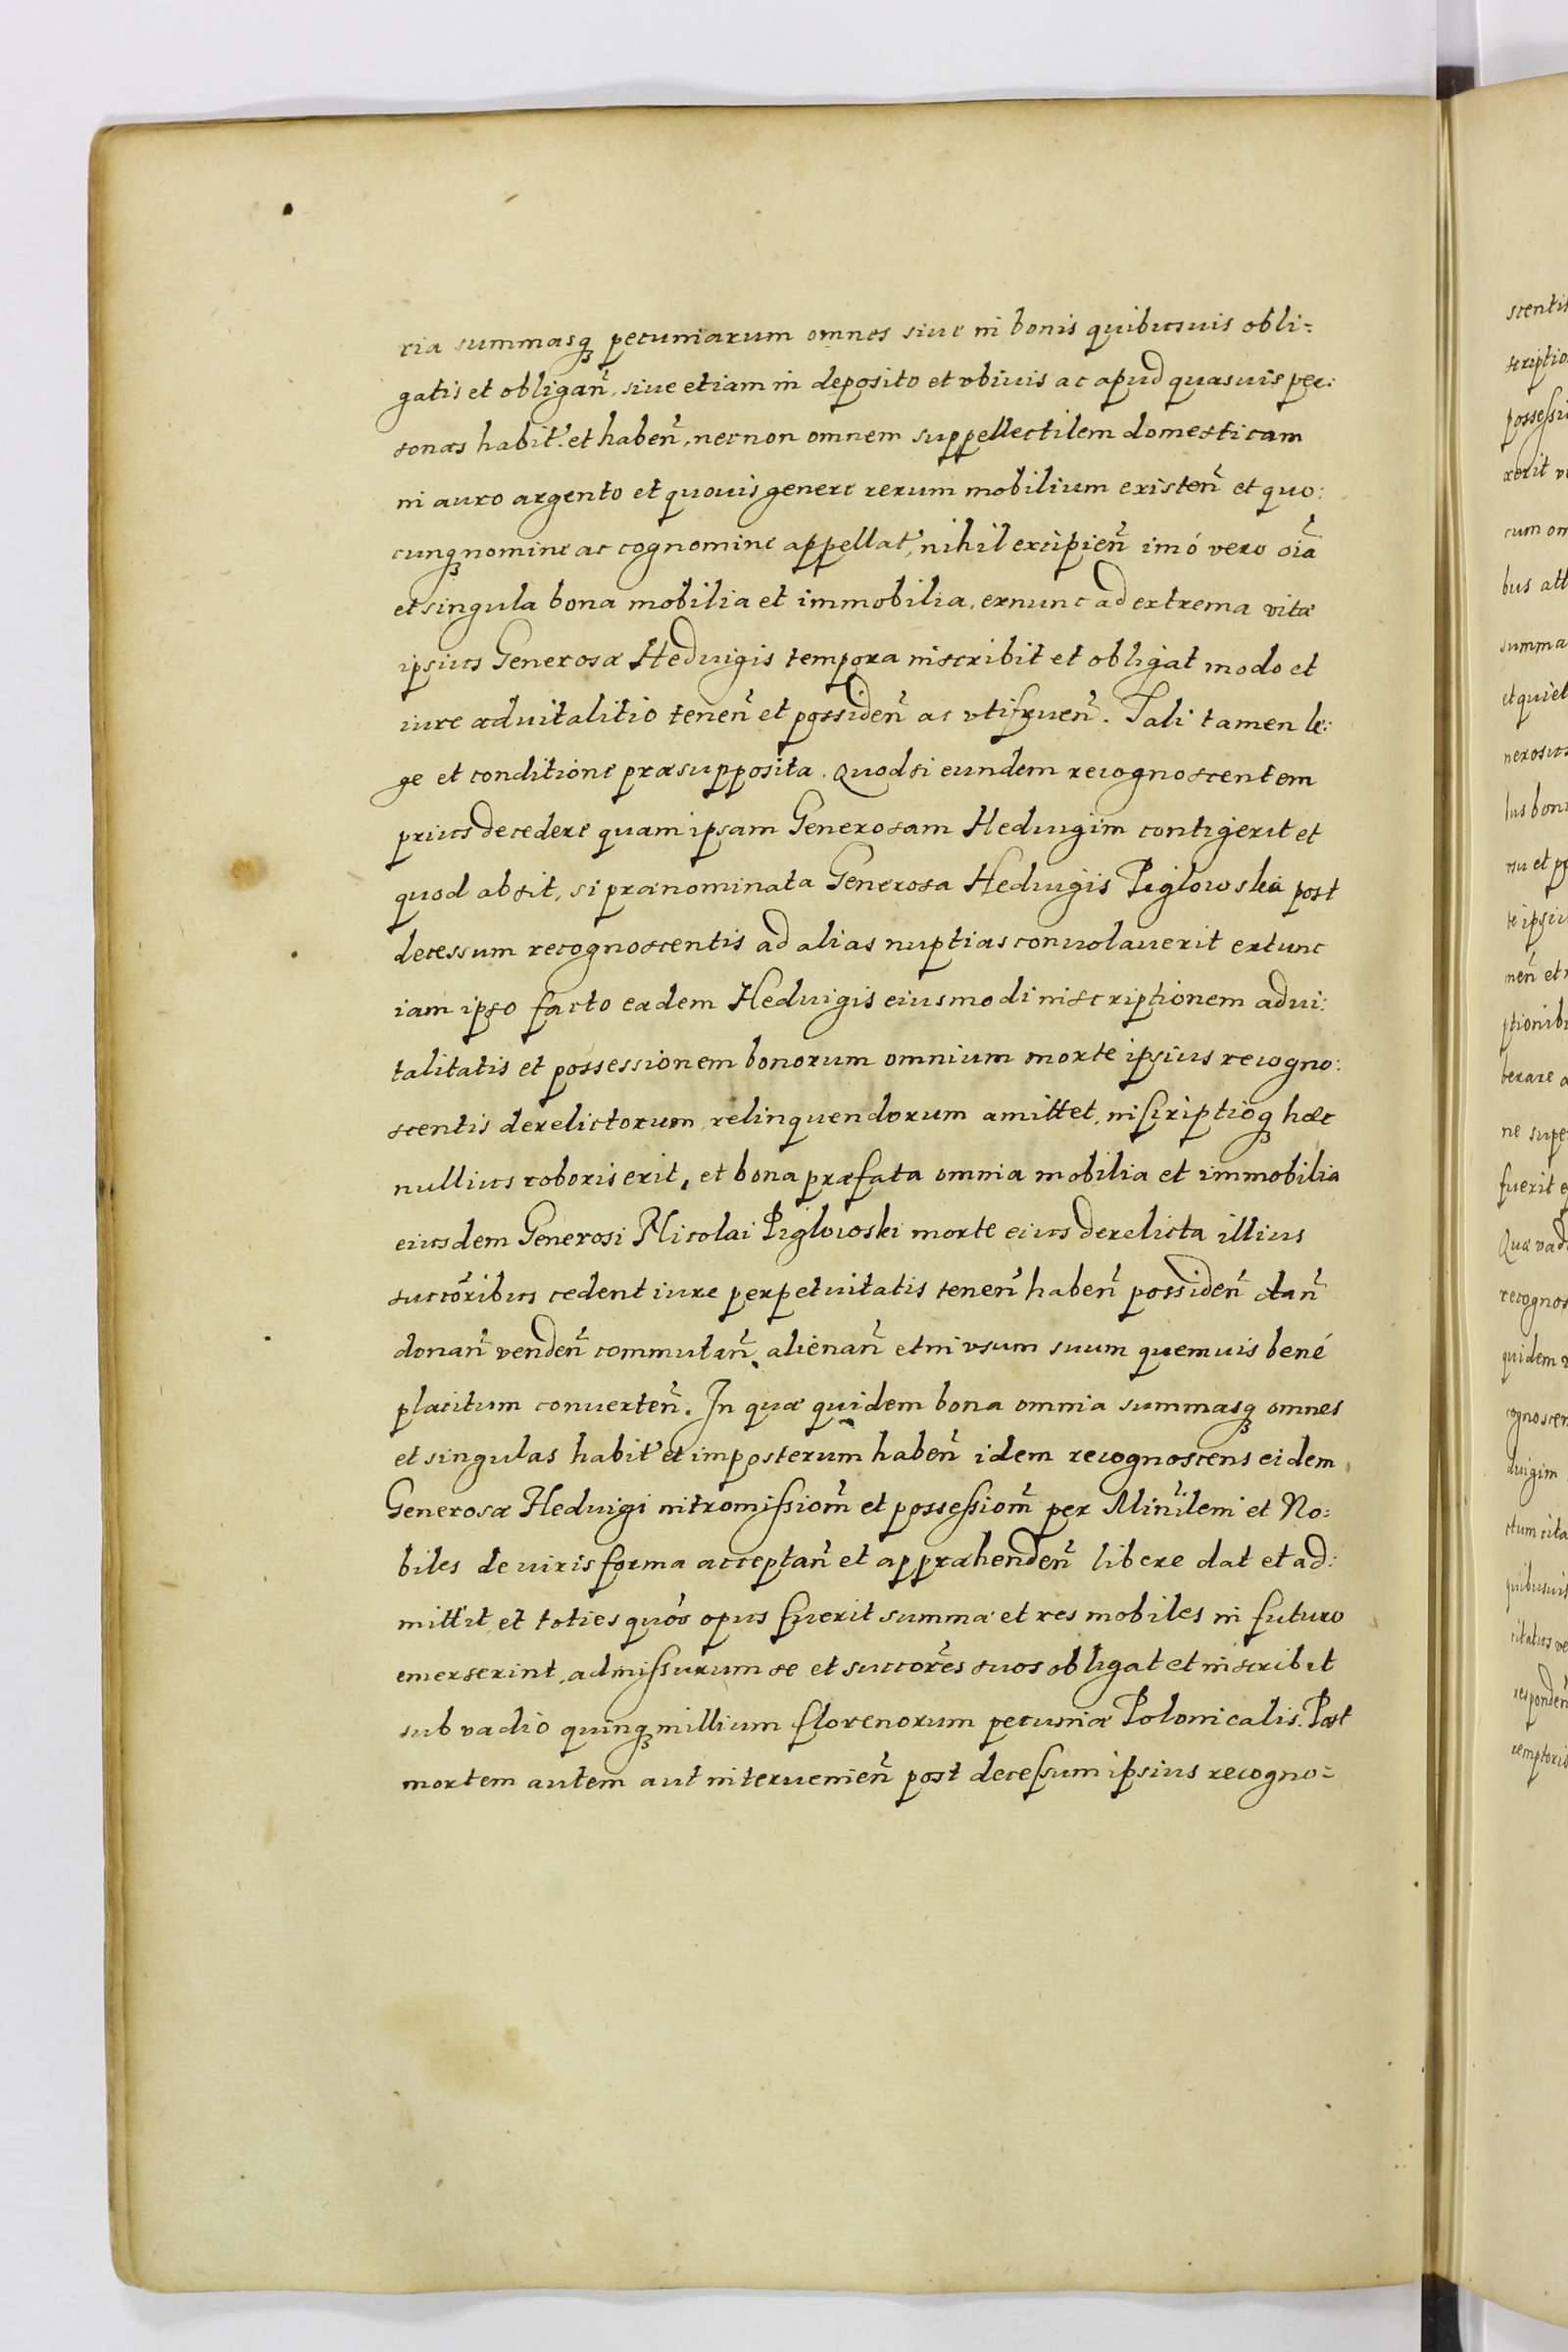 ria summasq₃ pecuniarum omnes siue in bonis quibusuis obli=
gatis et obligan̉, siue etiam in deposito et vbiuis ac apud quasuis per:
sonas habit̉ et haben̉, necnon omnem suppellectilem domesticam
in auro argento et quouis genere rerum mobilium existen̉ et quo:
cunq₃ nomine ac cognomine appellat̉, nihil excipien̉ imó vero oỉa
et singula bona mobilia et immobilia, exnunc ad extrema vitæ
ipsius Generosæ Heduigis tempora inscribit et obligat modo et
iure aduitalitio tenen̉ et possiden̉ ac vtifruen̉. Tali tamen le:
ge et conditione præsupposita. Quodsi eundem recognoscentem
prius decedere quam ipsam Generosam Heduigim contigerit et
quod absit, si prænominata Generosa Heduigis Piglowska post
decessum recognoscentis ad alias nuptias conuolauerit extunc
iam ipso facto eadem Heduigis eiusmodi inscriptionem adui:
talitatis et possessionem bonorum omnium morte ipsius recogno:
scentis derelictorum, relinquendorum amittet, inscriptioq₃ hæc
nullius roboris erit, et bona præfata omnia mobilia et immobilia
eiusdem Generosi Nicolai Piglowski morte eius derelicta illius
succor̉ibus cedent iure perpetuitatis tenen̉ haben̉ possiden̉ dan̉
donan̉ venden̉ commutan̉, alienan̉ et in vsum suum quemuis bené
placitum conuerten̉. In quæ quidem bona omnia summasq₃ omnes
et singulas habit̉ et imposterum haben̉ idem recognoscens eidem
Generosæ Heduigi intromissiom̉ et possessiom̉ per Min̉ilem et No:
biles de iuris forma acceptan̉ et appræhenden̉ libere dat et ad:
mittit, et toties quỏs opus fuerit summæ et res mobiles in futuro
emerserint, admissurum se et succor̉es suos obligat et inscribit
sub vadio quinq₃ millium florenorum pecuniæ Polonicalis. Post
mortem autem aut interuenien̉ post decessum ipsius recogno=